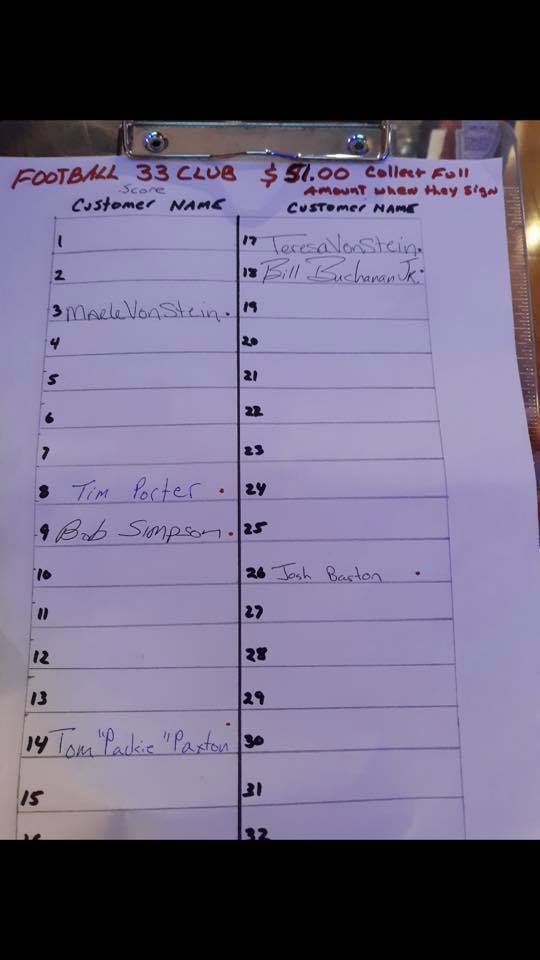 FOOTBALL 33 CLUB $51.00 Collect Full
Score
Amount when they sign
Customer NAME
Customer NAME
1
2
3 Marle VonStein.
4
5
6
7
8 Tim Porter .
9 Bob Simpson .
10
11
12
13
14 Tom "Packie" Paxton
15
17 Teresa VonStein.
18 Bill Buchanan Jr.
19
20
21
22
23
24
25
26 Josh Barton .
27
28
29
30
31
32